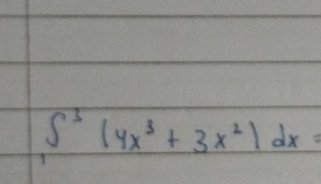 ∫₁³ (4x³ + 3x²) dx =